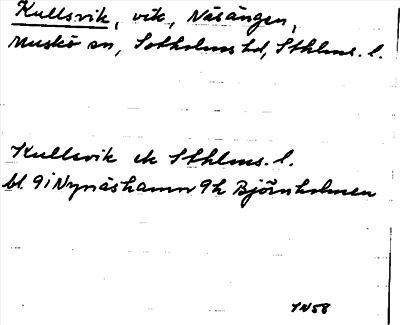 Kullsvik, vik, Näsängen,
Muskö sn, Sotholms hd, Sthlms. l.
Kullsvik ek Sthlms. l.
bl. 9i Nynäshamn 9h Björnholmen
1958